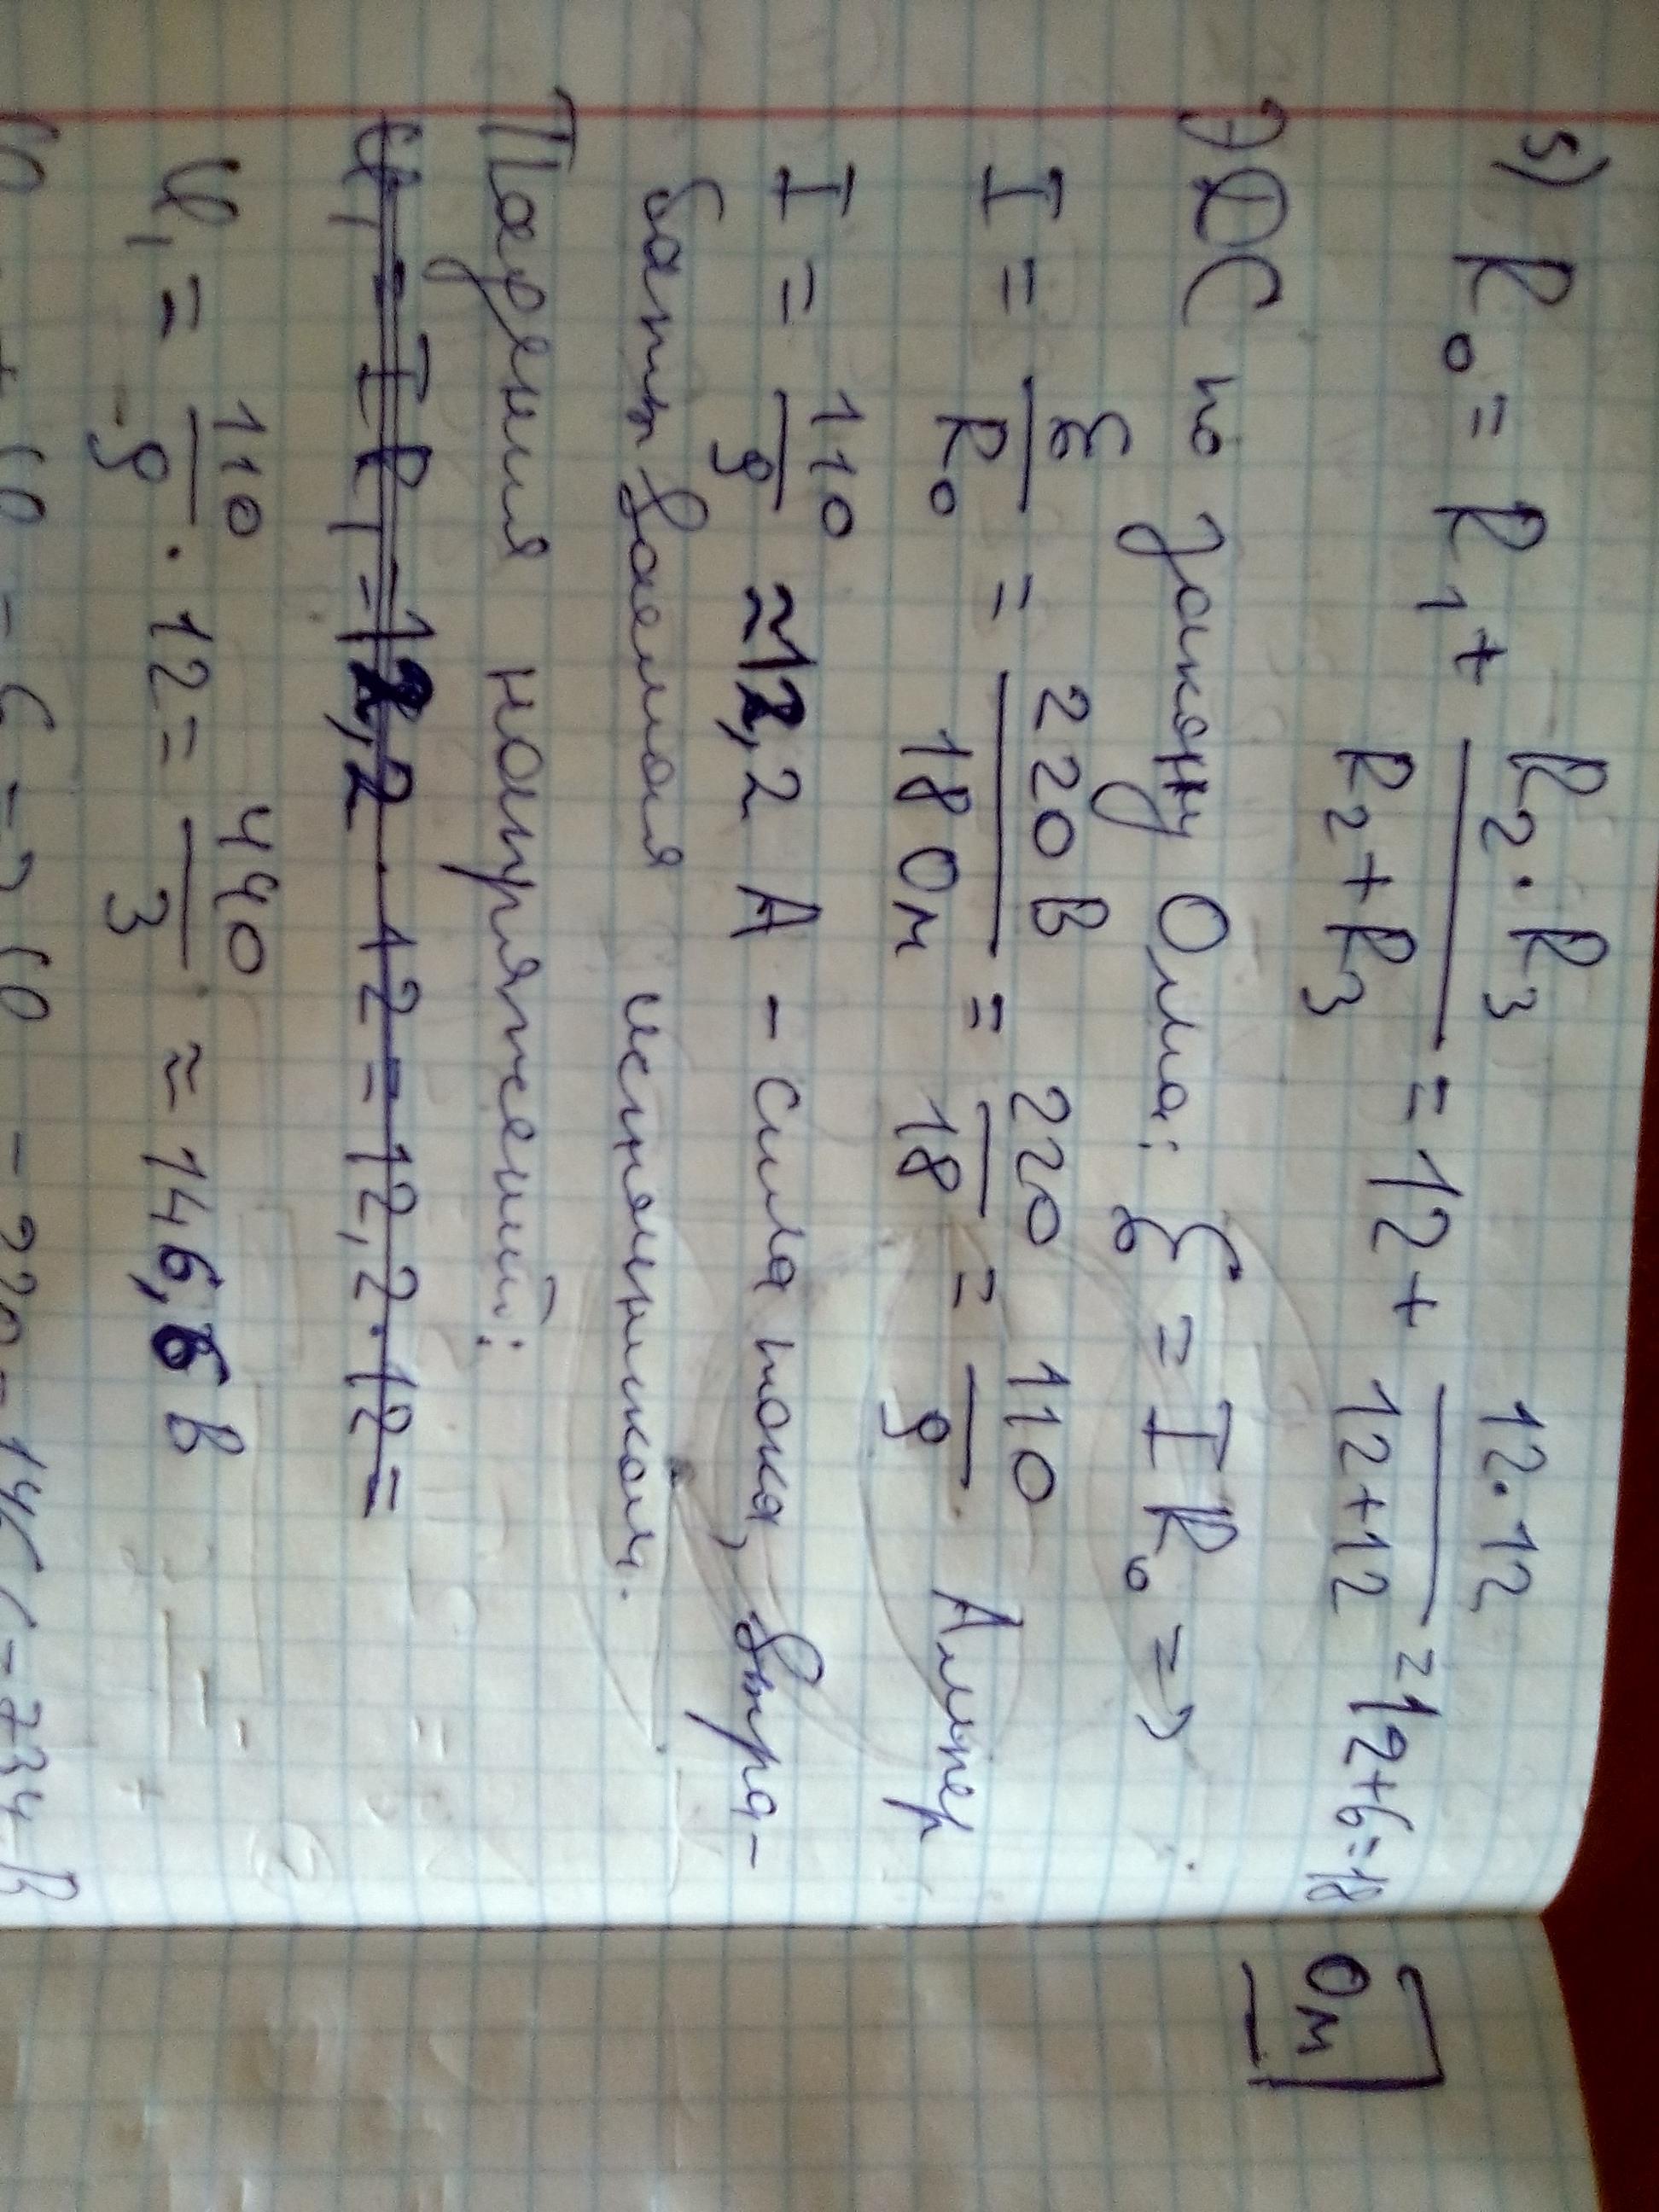 5) R₀ = R₁ + R₂·R₃ / R₂+R₃ = 12 + 12·12 / 12+12 = 12+6=18 Ом
ЭДС по закону Ома: ℰ = I R₀ =>
I = ℰ / R₀ = 220 В / 18 Ом = 220 / 18 = 110 / 9 Ампер
I = 110 / 9 ≈ 12,2 А – сила тока, выра-
батываемая источником.
Падения напряжений:
U₁ = I R₁ = 12,2 · 12 = 12,2 · 12 =
U₁ = 110 / 9 · 12 = 440 / 3 ≈ 146,6 В